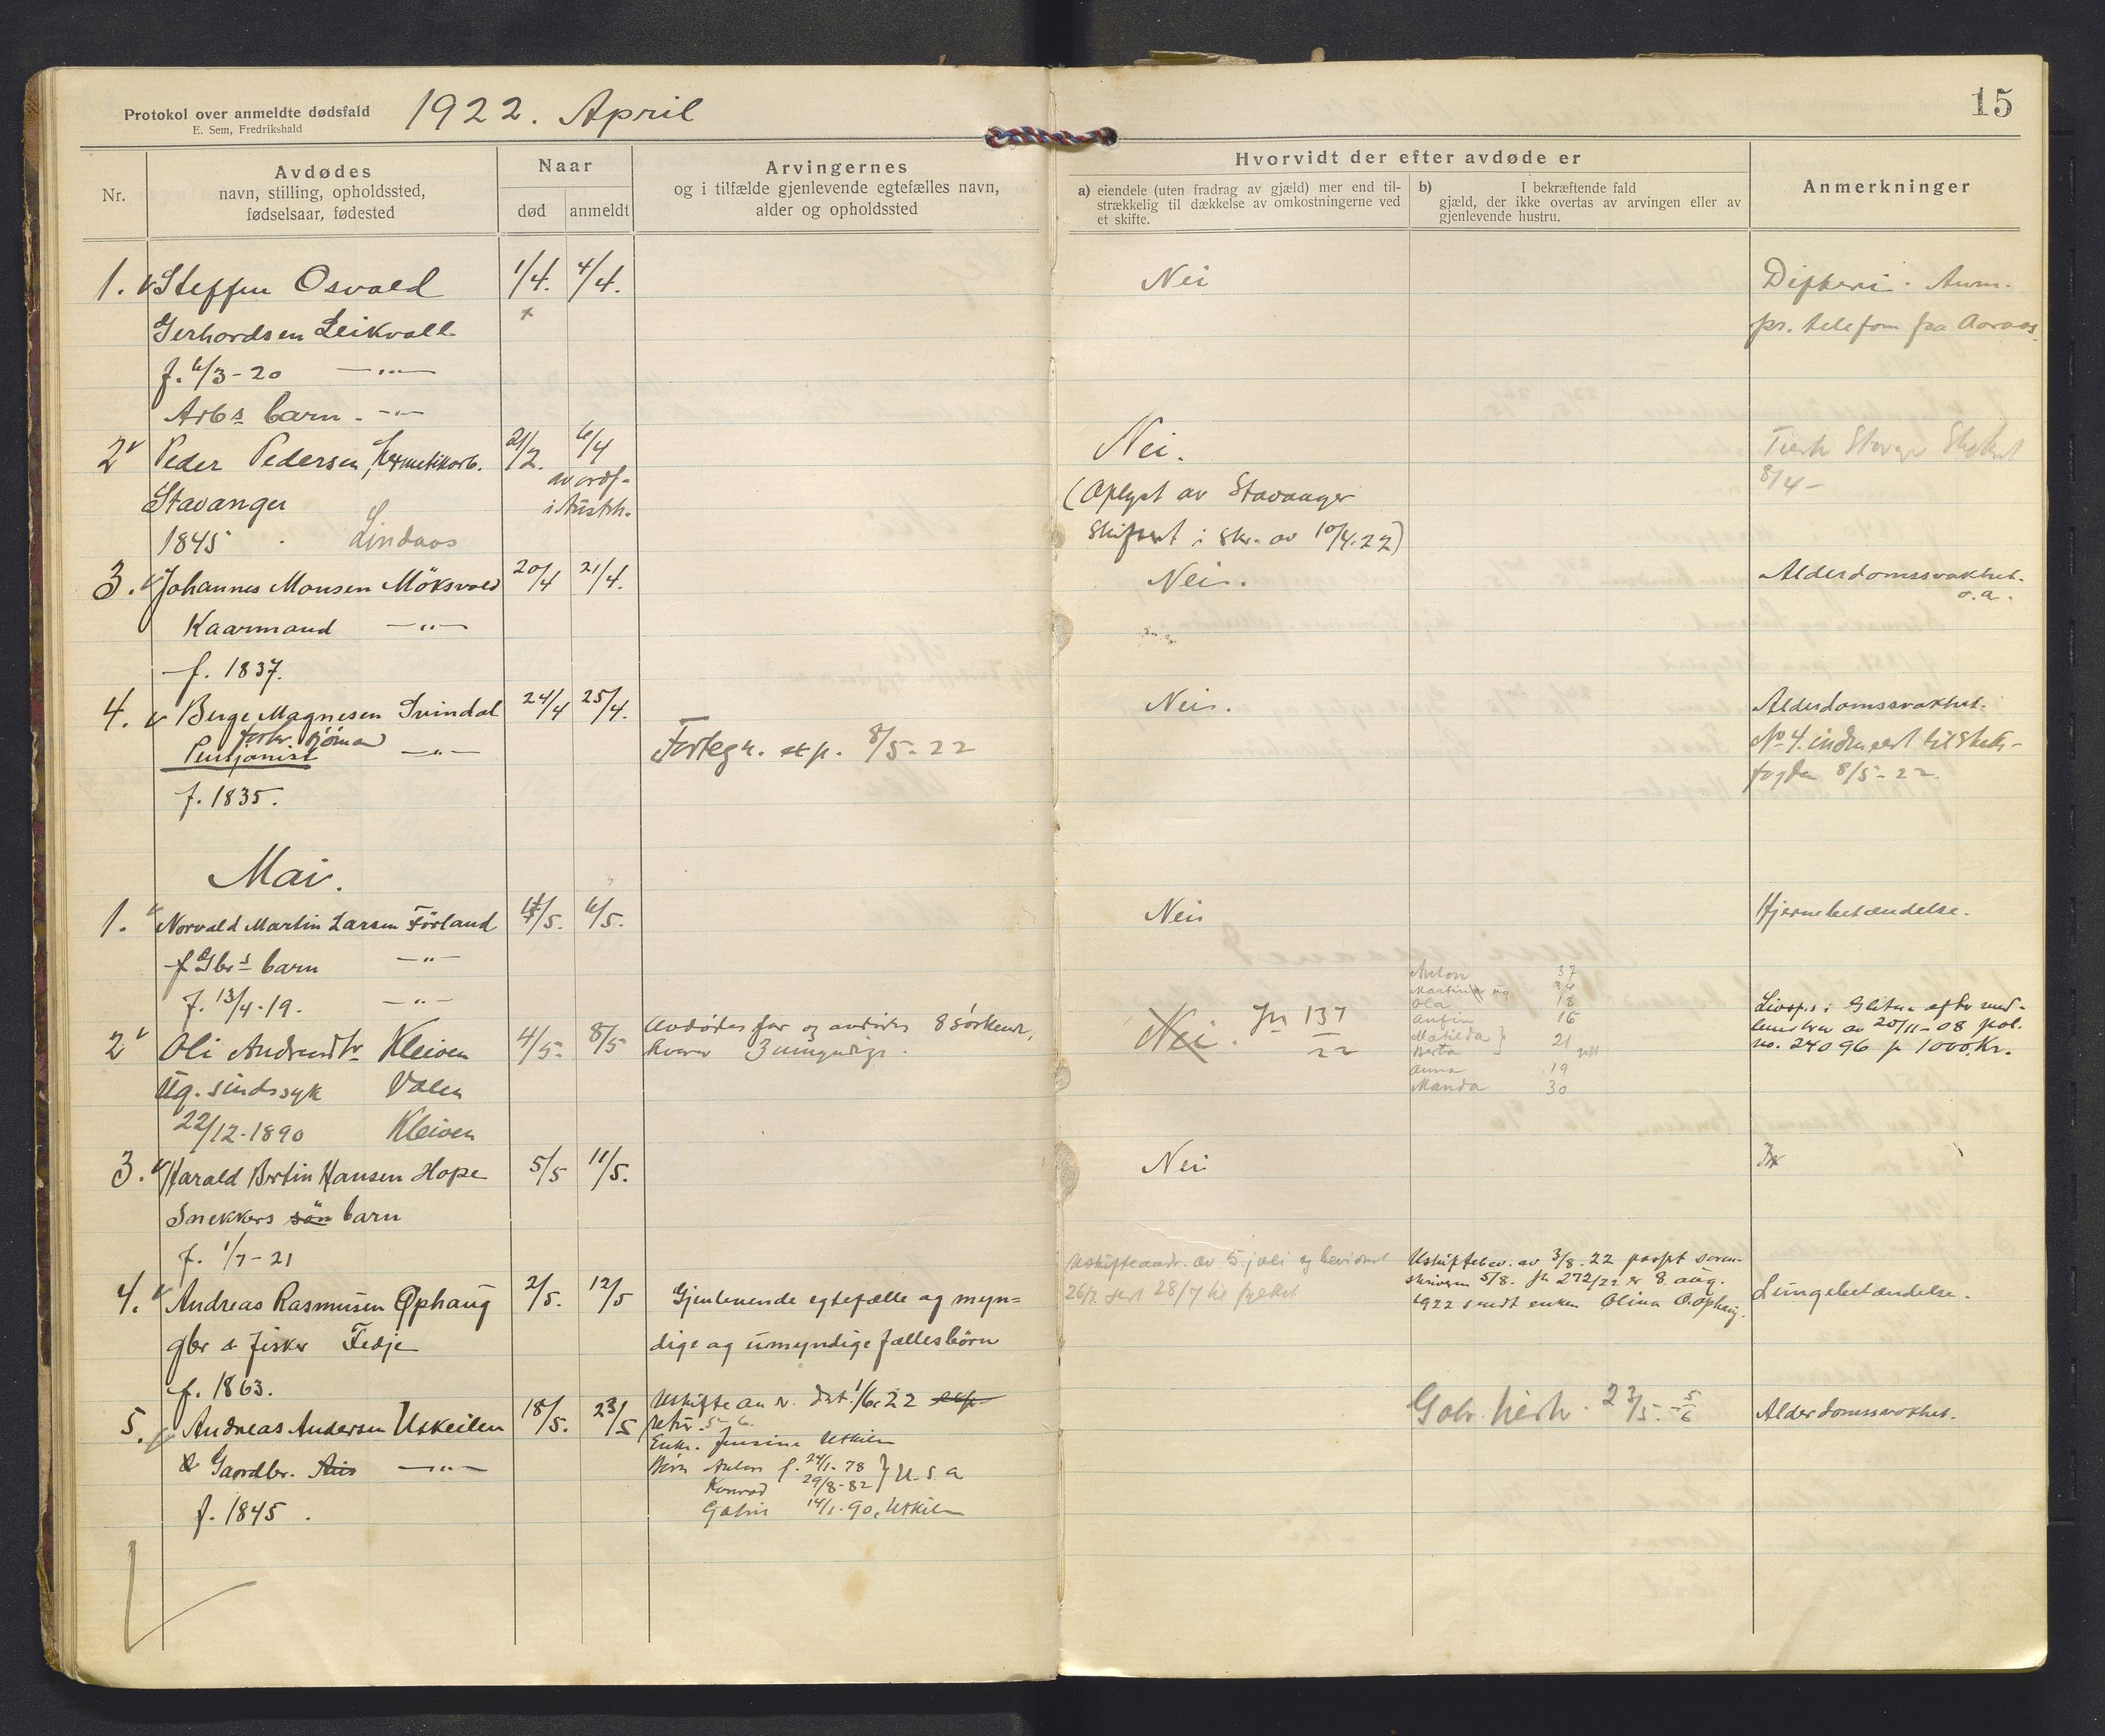 Protokol over anmeldte dødsfald
E. Sem, Fredrikshald
1922. April
15
Nr.
Avdødes
navn, stilling, opholdssted,
fødselsaar, fødested
Naar
død
anmeldt
Arvingernes
og i tilfælde gjenlevende egtefælles navn,
alder og opholdssted
Hvorvidt der efter avdøde er
a) eiendele (uten fradrag av gjæld) mer end til-
strækkelig til dækkelse av omkostningerne ved
et skifte.
b) I bekræftende fald
gjæld, der ikke overtas av arvingen eller av
gjenlevende hustru.
Anmerkninger
1. Steffen Osvald 1/4. 4/4. Nei Difteri. Anm.
Gerhardsen Leikvoll pr. telefon fra Aaraas
f. 6/3-20 —"—
Arbs barn. -"-
2 Peder Pedersen, hermetikarb. 21/2. 6/4 Nei.
Stavanger (Oplyst av Stavanger 8/4-
1845 Lindaas Skifteret i skr. av 10/4.22)
3. Johannes Monsen Möksvold 20/4 21/4. Nei. Alderdomssvakhet.
o.a.
Kaarmand —"—
f. 1837.
4. Berge Magnesen Svindal 24/4 25/4. Nei. Alderdomssvakhet.
forhv. sjömand
Pensjonist —"— Fortegn. exp. 8/5-22 No 4. til
f. 1835. 8/5-22.
Mai.
1. Norvald Martin Larsen Förland 4/5. 6/5. Nei Hjernebetændelse.
Gbrs barn —"—
f. 13/4-19. —"—
2 Oli Andreasdtr Kleiven 4/5- 8/5 Avdödes far og avdödes 8 sösken, Nei. Jn 137
22
hvorav 3 umyndige.
Anton 37
Martin 34
Ola 18
Anfin 16
Matilda } 21
Berta
Anna 19
Manda 30
Livsp. i Glitne efter
av 20/11-08 pol.
no. 24096 1000 Kr.
Ug. sindssyk Valen
22/12-1890 Kleiven
3. Harald Bertin Hansen Hope 5/5 11/5. Nei
Snekkers sön barn
f. 1/7-21
4. Andreas Rasmusen Ophaug 2/5. 12/5 Gjenlevende egtefælle og myn=
gbr & fisker Fedje dige og umyndige fællesbörn
f. 1863.
av 5. juli og bevidnet
26/7 28/7
Uskiftebev. av 3/8-22 soren-
skriveren 5/8. Jn 272/22 er 8. aug.
1922 sendt enken Olina O. Ophaug.
Lungebetændelse.
5. Andreas Andersen Uskeilen 18/5. 23/5 Uskifte an dat. 1/6.22 23/5. 5/6 Alderdomssvakhet.
retur. 5-6.
Enke. Jensine Utkilen
& Gaardbr. —"— Börn Anders f. 24/1-78 } U.S.A
Konrad 29/8-82
f. 1845. 14/1-90, Utkilen